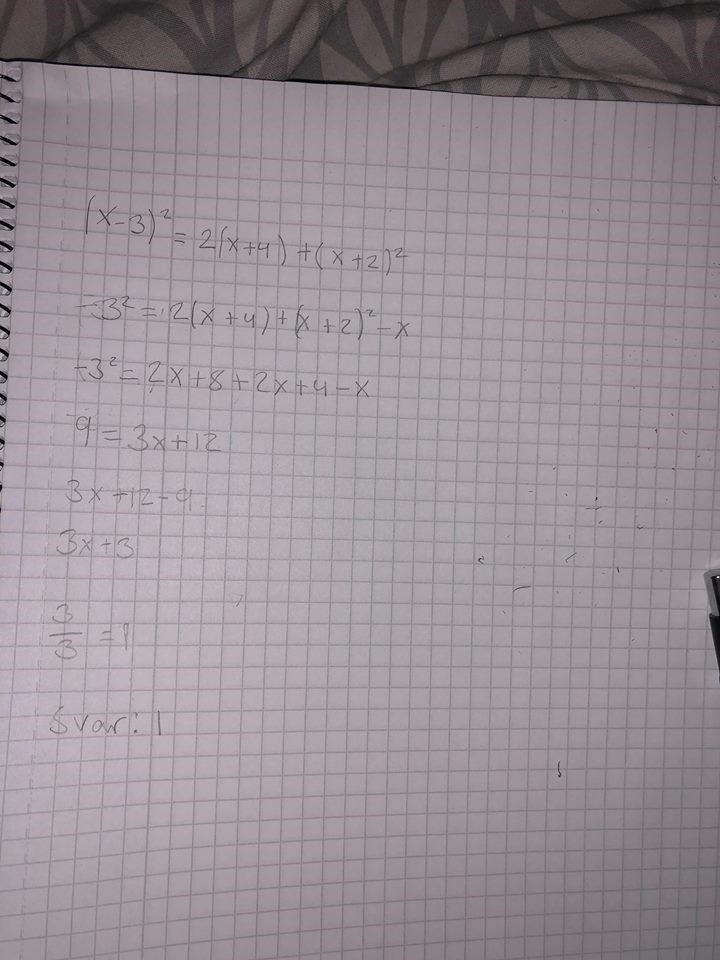 (x-3)² = 2(x+4) + (x+2)²
-3² = 2(x+4) + (x+2)² - x
-3² = 2x+8+2x+4-x
9 = 3x+12
3x+12-9
3x+3
3/3 = 1
Svar: 1